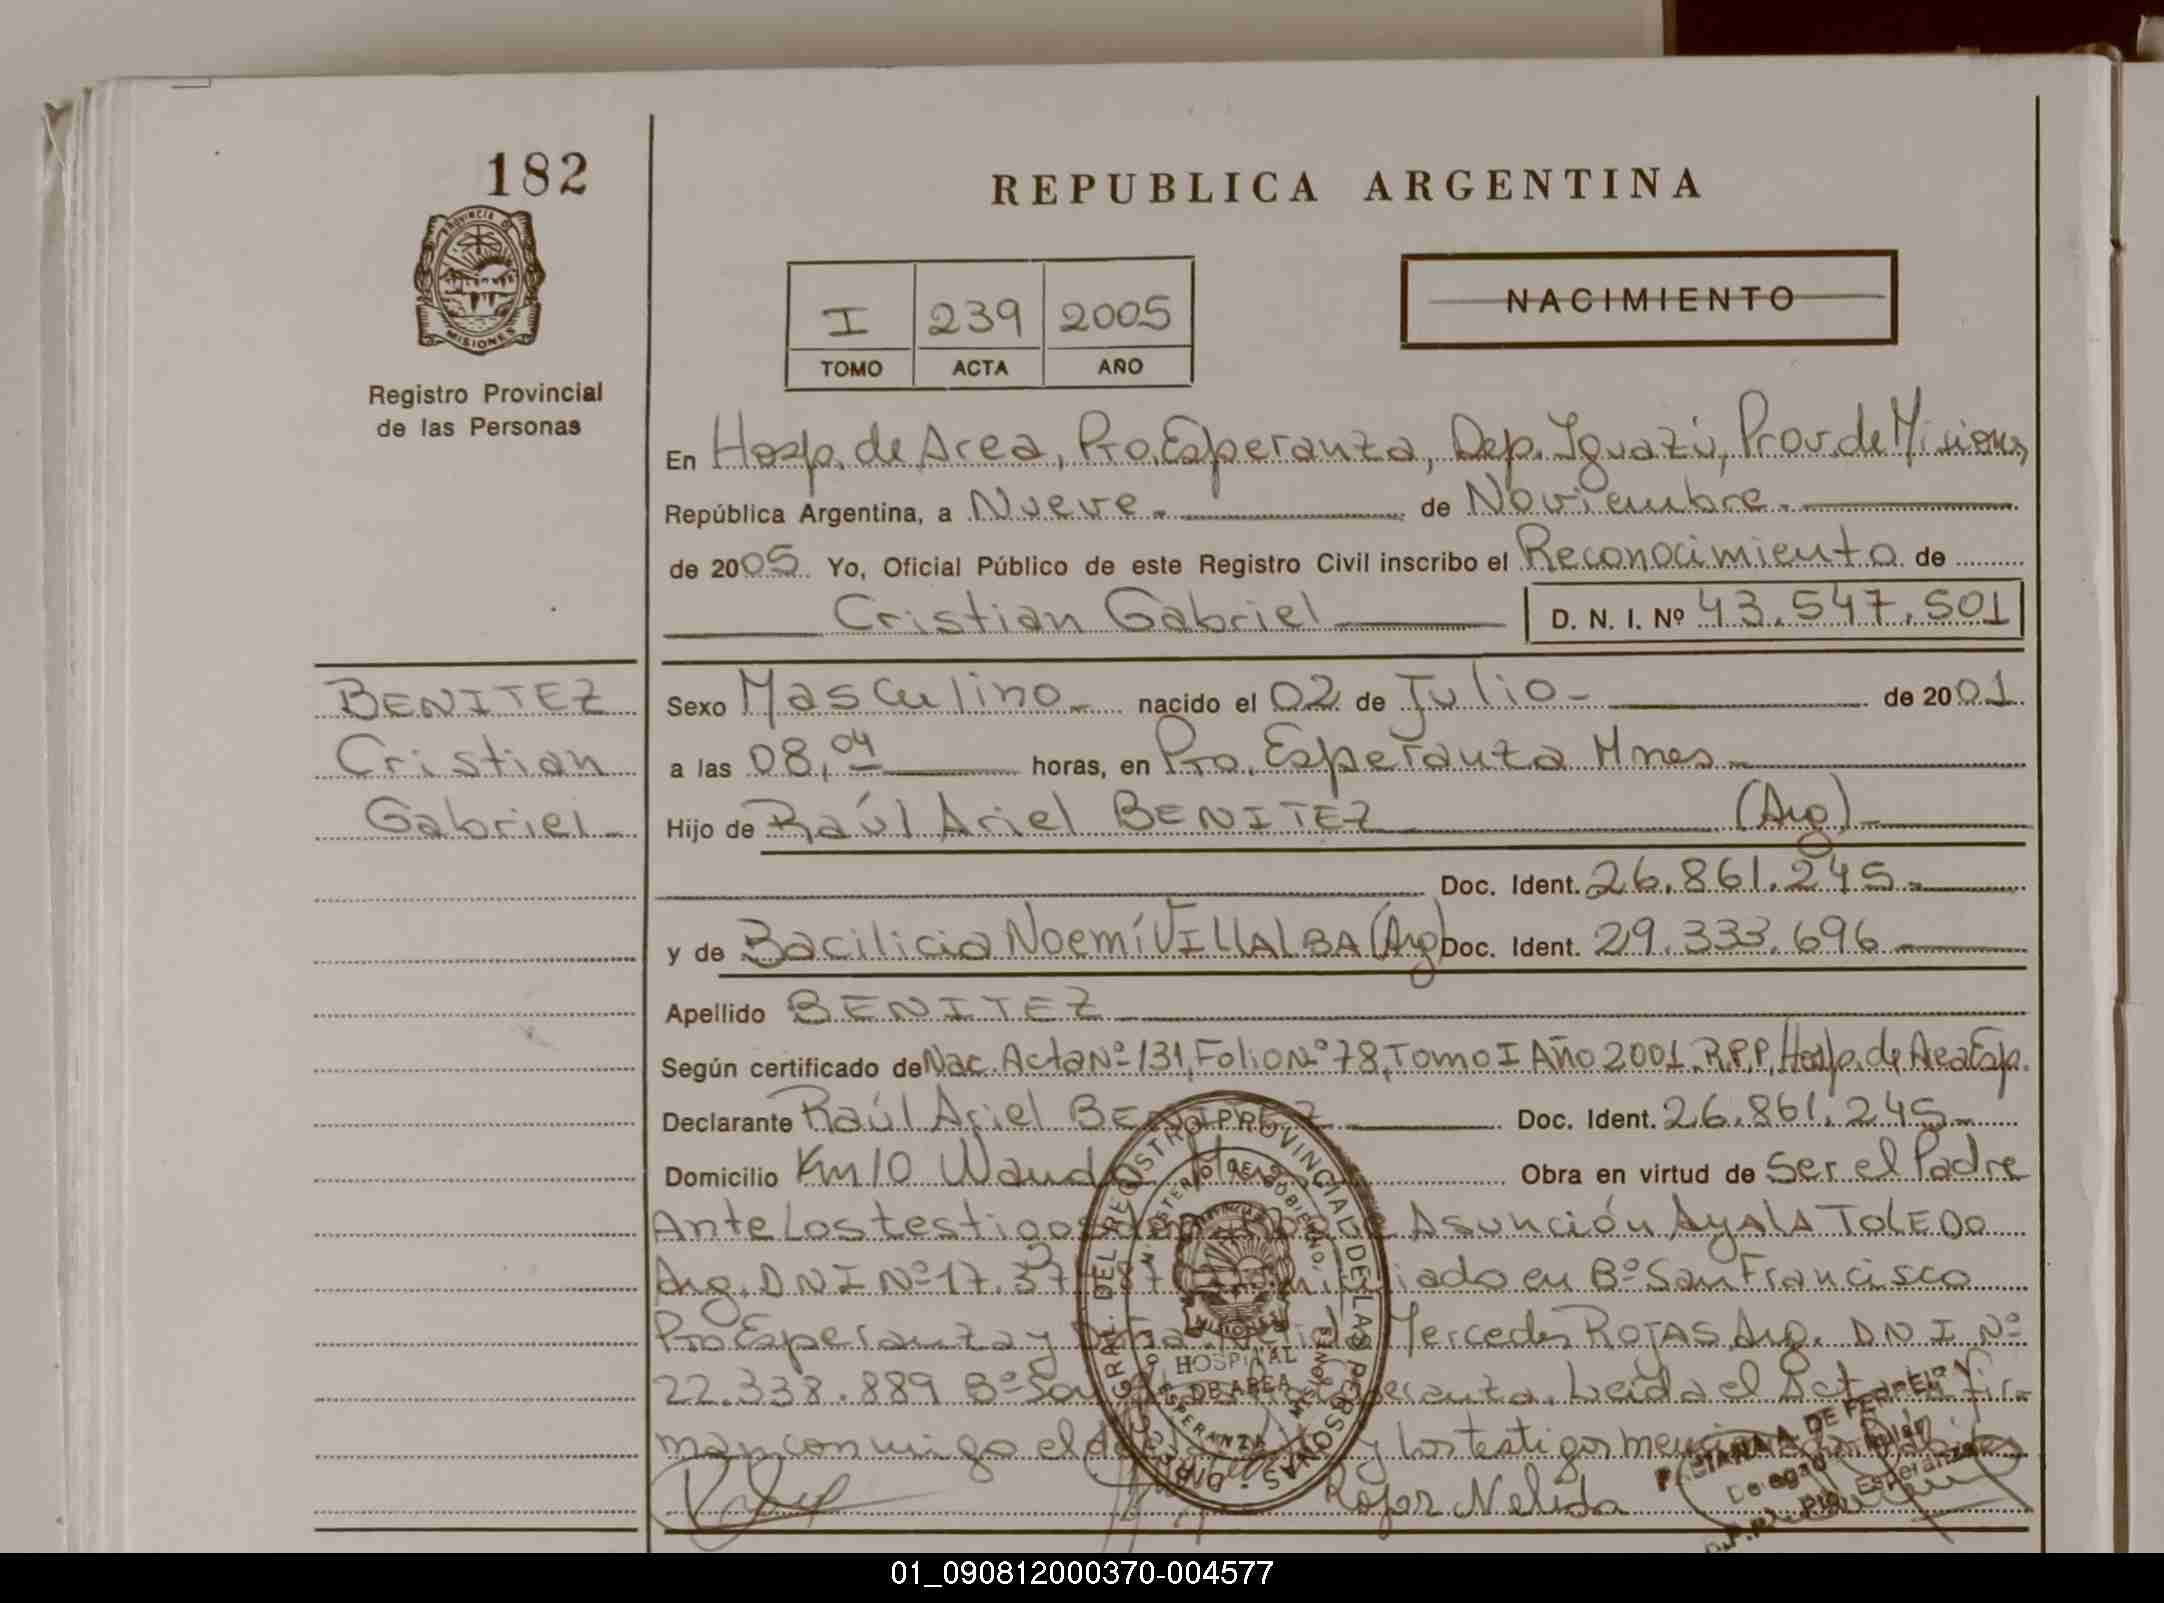 182
REPUBLICA ARGENTINA
PROVINCIA DE
MISIONES
Registro Provincial
de las Personas
I 239 2005
TOMO ACTA AÑO
NACIMIENTO
En Hosp. de Area, Pto. Esperanza, Dep. Iguazú, Prov. de Misiones
República Argentina, a Nueve. de Noviembre.
de 2005. Yo, Oficial Público de este Registro Civil inscribo el Reconocimiento de
Cristian Gabriel D. N. I. Nº 43.547.501
BENITEZ
Cristian
Gabriel
Sexo Masculino nacido el 02 de Julio de 2001
a las 08,04 horas, en Pto. Esperanza Mnes
Hijo de Raúl Ariel BENITEZ (Arg)
Doc. Ident. 26.861.245
y de Bacilicia Noemí VILLALBA (Arg) Doc. Ident. 29.333.696
Apellido BENITEZ
Según certificado de Nac. Acta Nº 131, Folio Nº 78, Tomo I Año 2001. R.P.P. Hosp. de Area Esp.
Declarante Raúl Ariel BENITEZ Doc. Ident. 26.861.245
Domicilio Km 10 Wanda Mnes Obra en virtud de Ser el Padre
Ante Los testigos Asunción Ayala TOLEDO
Arg. DNI Nº 17.37 en Bº San Francisco
Pto Esperanza y Mercedes ROJAS, Arg. DNI Nº
22.338.889 Bº Leída el Acta fir-
man conmigo el y los testigos
Rojas Nelida
DIREC. GRAL. DEL REGISTRO PROVINCIAL DE LAS PERSONAS
MINISTERIO DE GOBIERNO
MISIONES
HOSPITAL
DE AREA
ESPERANZA
01_090812000370-004577